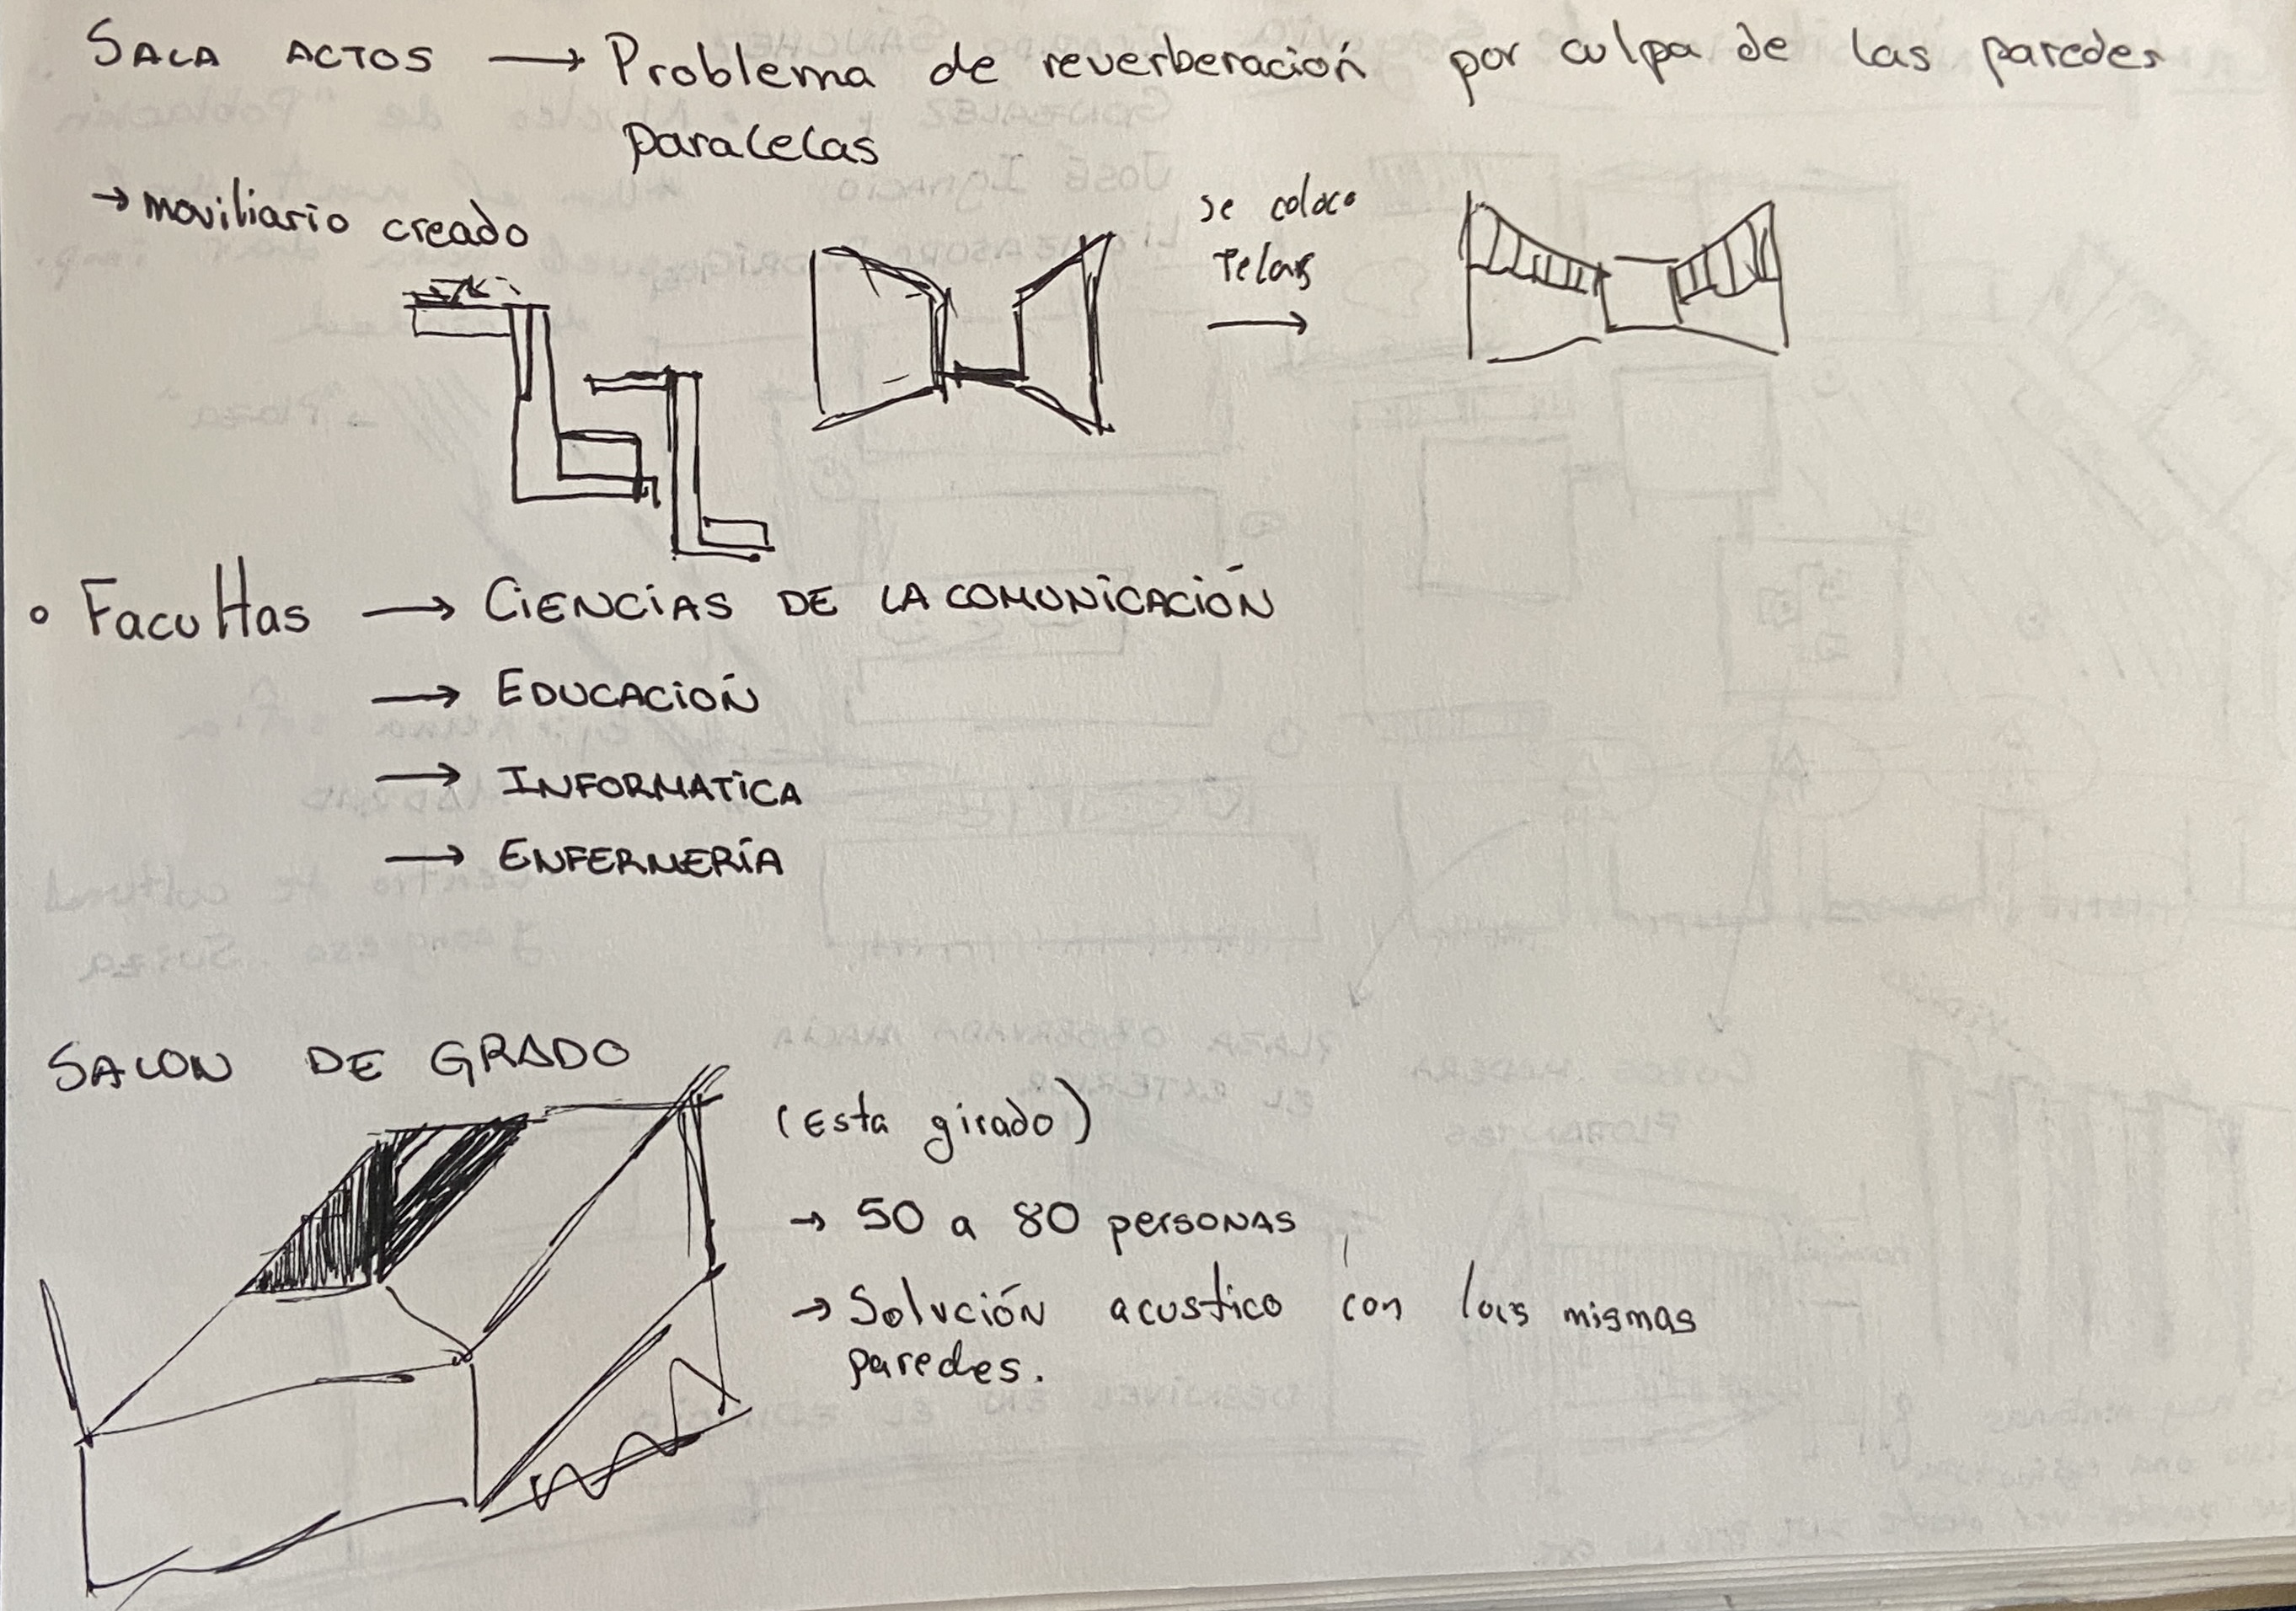 SALA ACTOS → Problema de reverberación por culpa de las paredes
paralelas
→ moviliario creado
se coloco
telas
→
• Facultas → CIENCIAS DE LA COMUNICACIÓN
→ EDUCACIÓN
→ INFORMATICA
→ ENFERMERÍA
SALON DE GRADO
(Esta girado)
→ 50 a 80 personas
→ Solución acustico con las mismas
paredes.